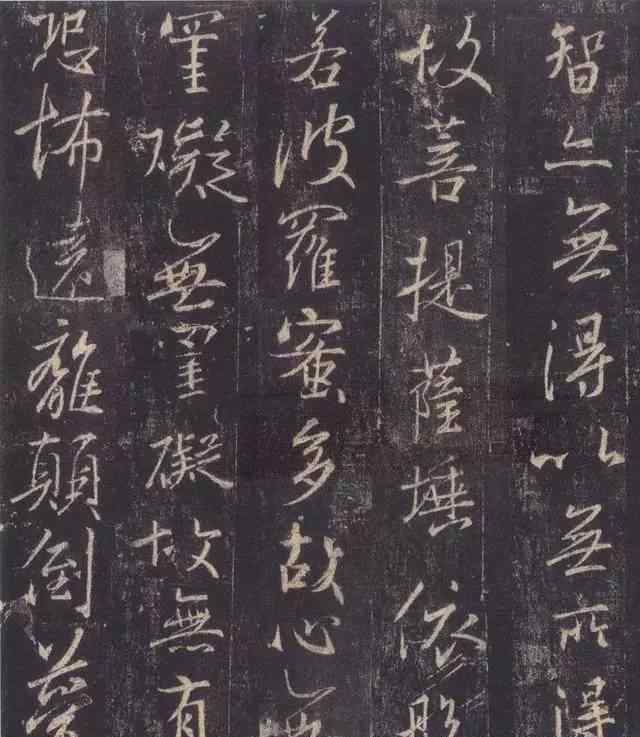 智亦無得以無所得
故菩提薩埵依般
若波羅蜜多故心無
罣礙無罣礙故無有
恐怖遠離顛倒夢